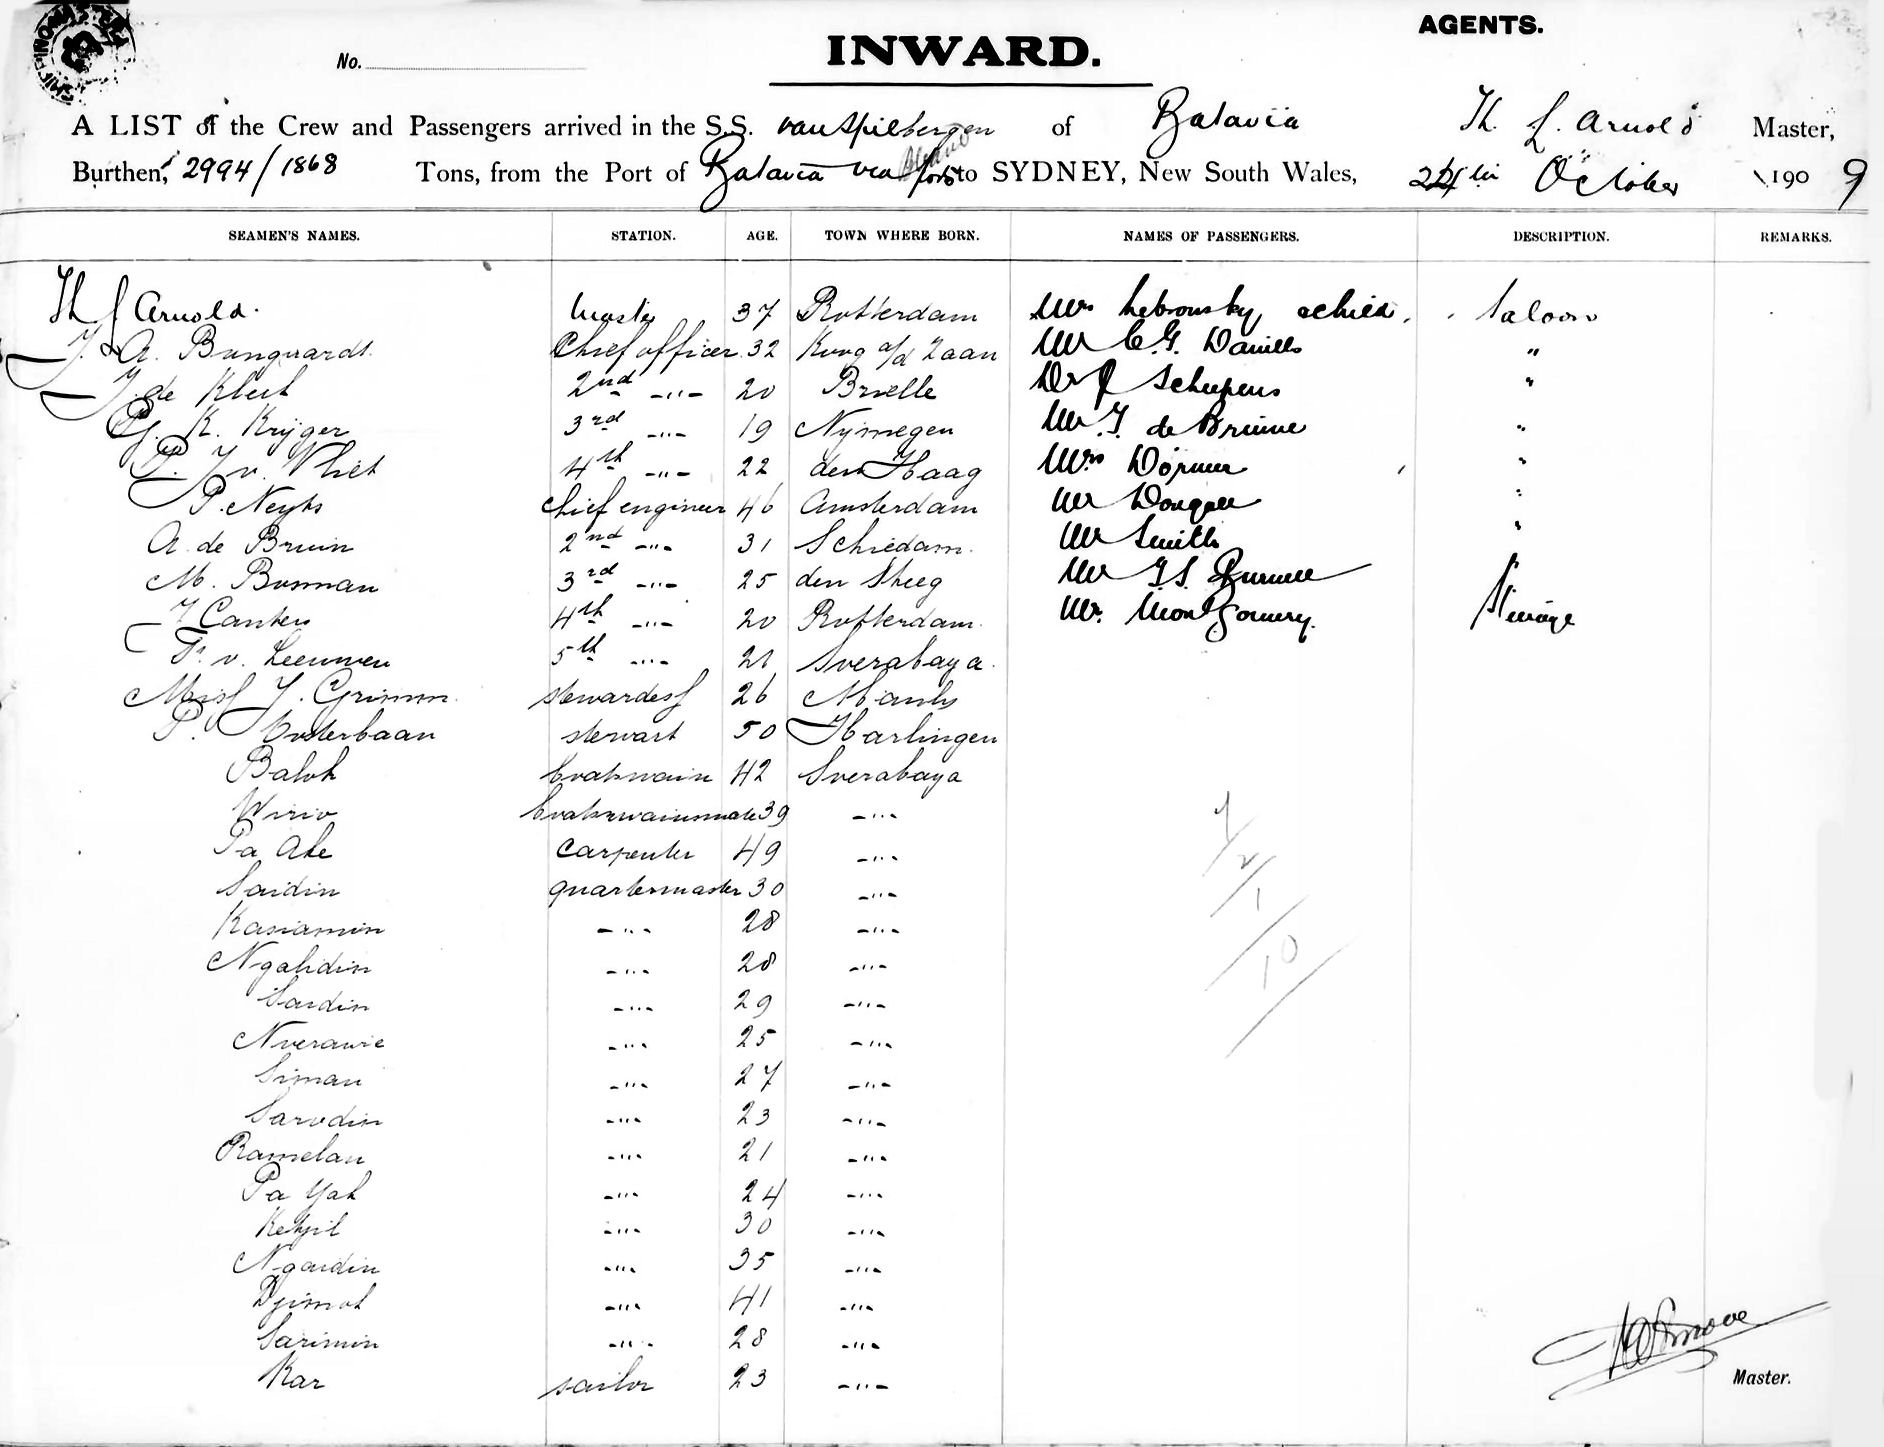 AGENTS.
INWARD.
No.
A LIST of the Crew and Passengers arrived in the S.S. van Spilbergen of Batavia Th. L. Arnold Master,
Burthen, 2994/1868 Tons, from the Port of Batavia via ports to SYDNEY, New South Wales, October 1909
SEAMEN'S NAMES. STATION. AGE. TOWN WHERE BORN. NAMES OF PASSENGERS. DESCRIPTION. REMARKS.
Th L Arnold. Master 37 Rotterdam Mrs child. Saloon
J. A. Bunguardt. Chief officer 32 Koog a/d Zaan Mr C. G. Daniells "
J. de Kleit 2nd -"- 20 Brielle Dr Scheepens "
K. Krijger 3rd -"- 19 Nymegen Mr. J. de Bruine "
P. J. v. Vliet 4th -"- 22 den Haag Mrs "
P. Neyts chief engineer 46 Amsterdam Mr "
A. de Bruin 2nd -"- 31 Schiedam. Mr Smith "
M. Bosman 3rd -"- 25 den Mr
J Canters 4th -"- 20 Rotterdam. Mr. Montgomery. Steerage
F. v. Leeuwen 5th -"- 21 Soerabaya.
Miss J. Grimm. stewardess 26
P. Oosterbaan stewart 50 Harlingen
Balok boatswain 42 Soerabaya
Wirio boatswainsmate 39 -"-
Pa Ake carpenter 49 -"-
Saidin quartermaster 30 -"-
Kasiamin -"- 28 -"-
Ngalidin -"- 28 -"-
Sardin -"- 29 -"-
Noerawie -"- 25 -"-
Siman -"- 27 -"-
Sarodin -"- 23 -"-
Ramelan -"- 21 -"-
Pa Yak -"- 24 -"-
Ketjil -"- 30 -"-
Ngaidin -"- 35 -"-
Djimat -"- 41 -"-
Sarimin -"- 28 -"-
Kar sailor 23 -"-
Master.